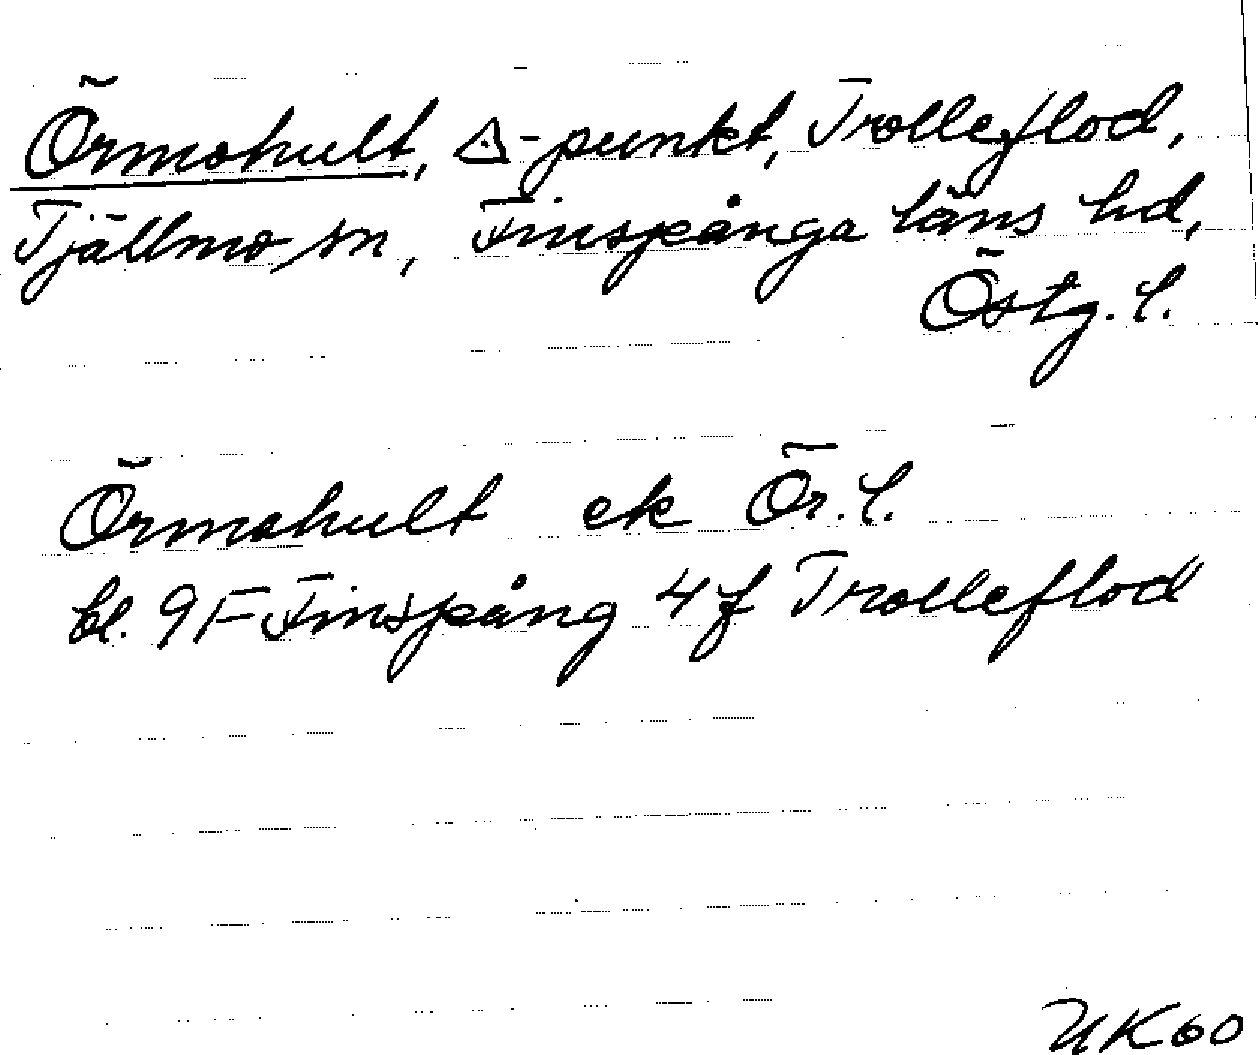 Örmohult, △-punkt, Trolleflod,
Tjällmo sn, Finspånga läns hd,
Östg. l.
Örmohult ek Ör. l.
bl. 9F Finspång 4f Trolleflod
UK60